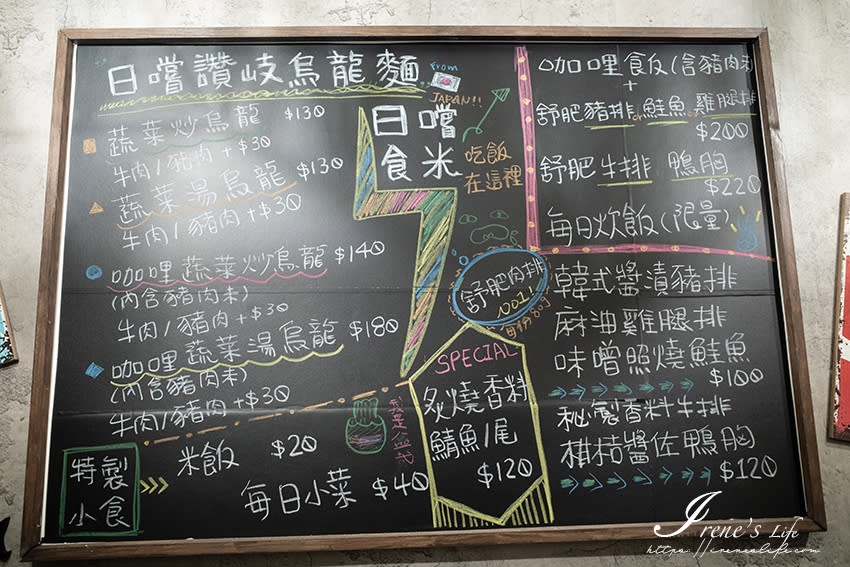 日嚐讚岐烏龍麵
from
JAPAN!!
蔬菜炒烏龍 $130
牛肉/豬肉 +$30
蔬菜湯烏龍 $130
牛肉/豬肉 +$30
咖哩蔬菜炒烏龍 $140
(內含豬肉末)
牛肉/豬肉 +$30
咖哩蔬菜湯烏龍 $180
(內含豬肉末)
牛肉/豬肉 +$30
特製
小食
米飯 $20
每日小菜 $40
日嚐
食米
吃飯
在這裡
咖哩食飯(含豬肉末)
+
舒肥豬排or鮭魚or雞腿排
$200
舒肥牛排 鴨胸
$220
每日炊飯(限量)
舒肥肉排
NO1!
韓式醬漬豬排
麻油雞腿排
味噌照燒鮭魚
$100
秘製香料牛排
柑桔醬佐鴨胸
$120
SPECIAL
炙燒香料
鯖魚/尾
$120
Irene's Life
https://irenelife.com